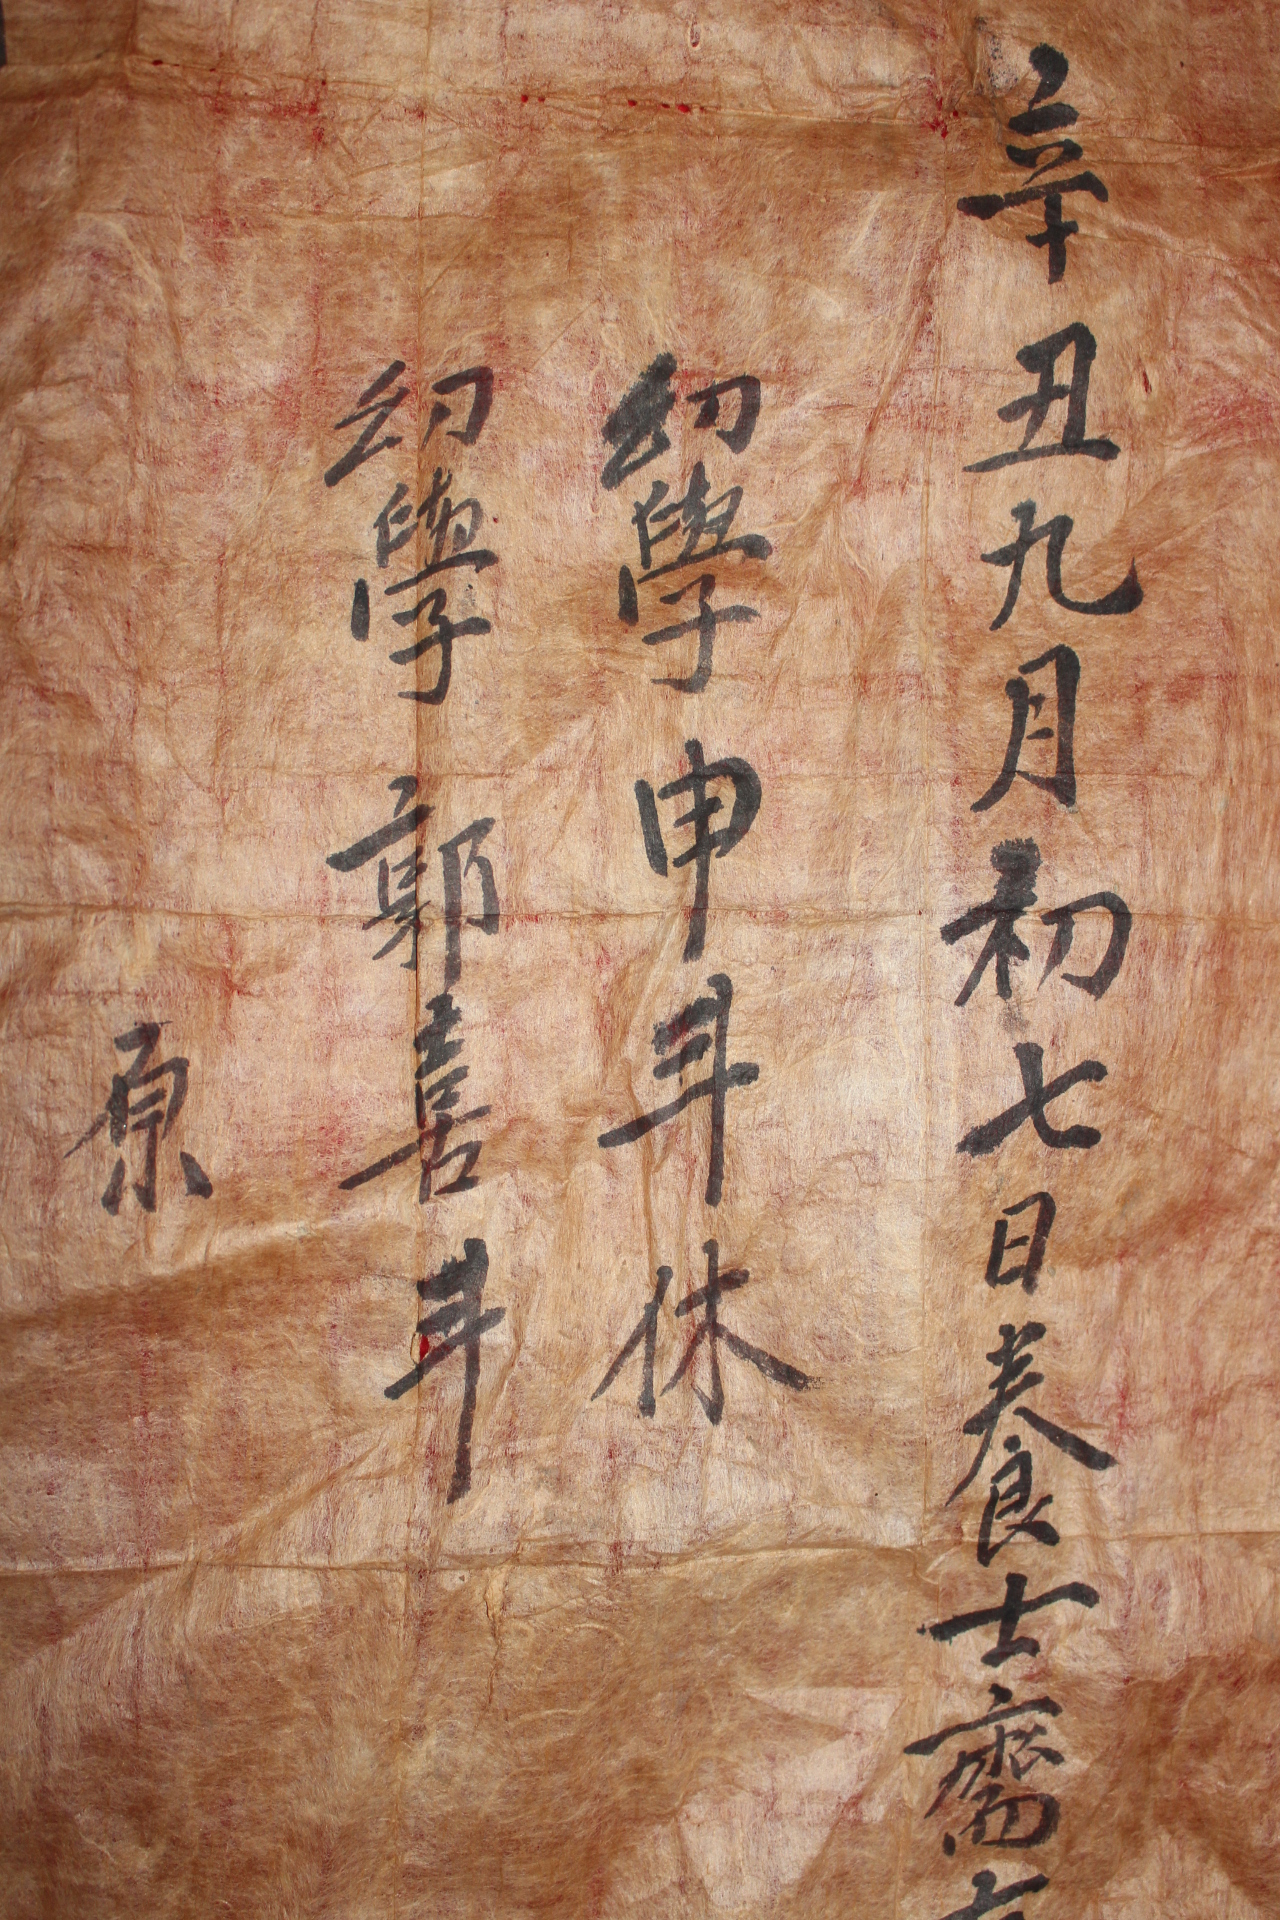 辛丑九月初七日養士齋
幼學 申斗休
幼學 郭喜斗
原